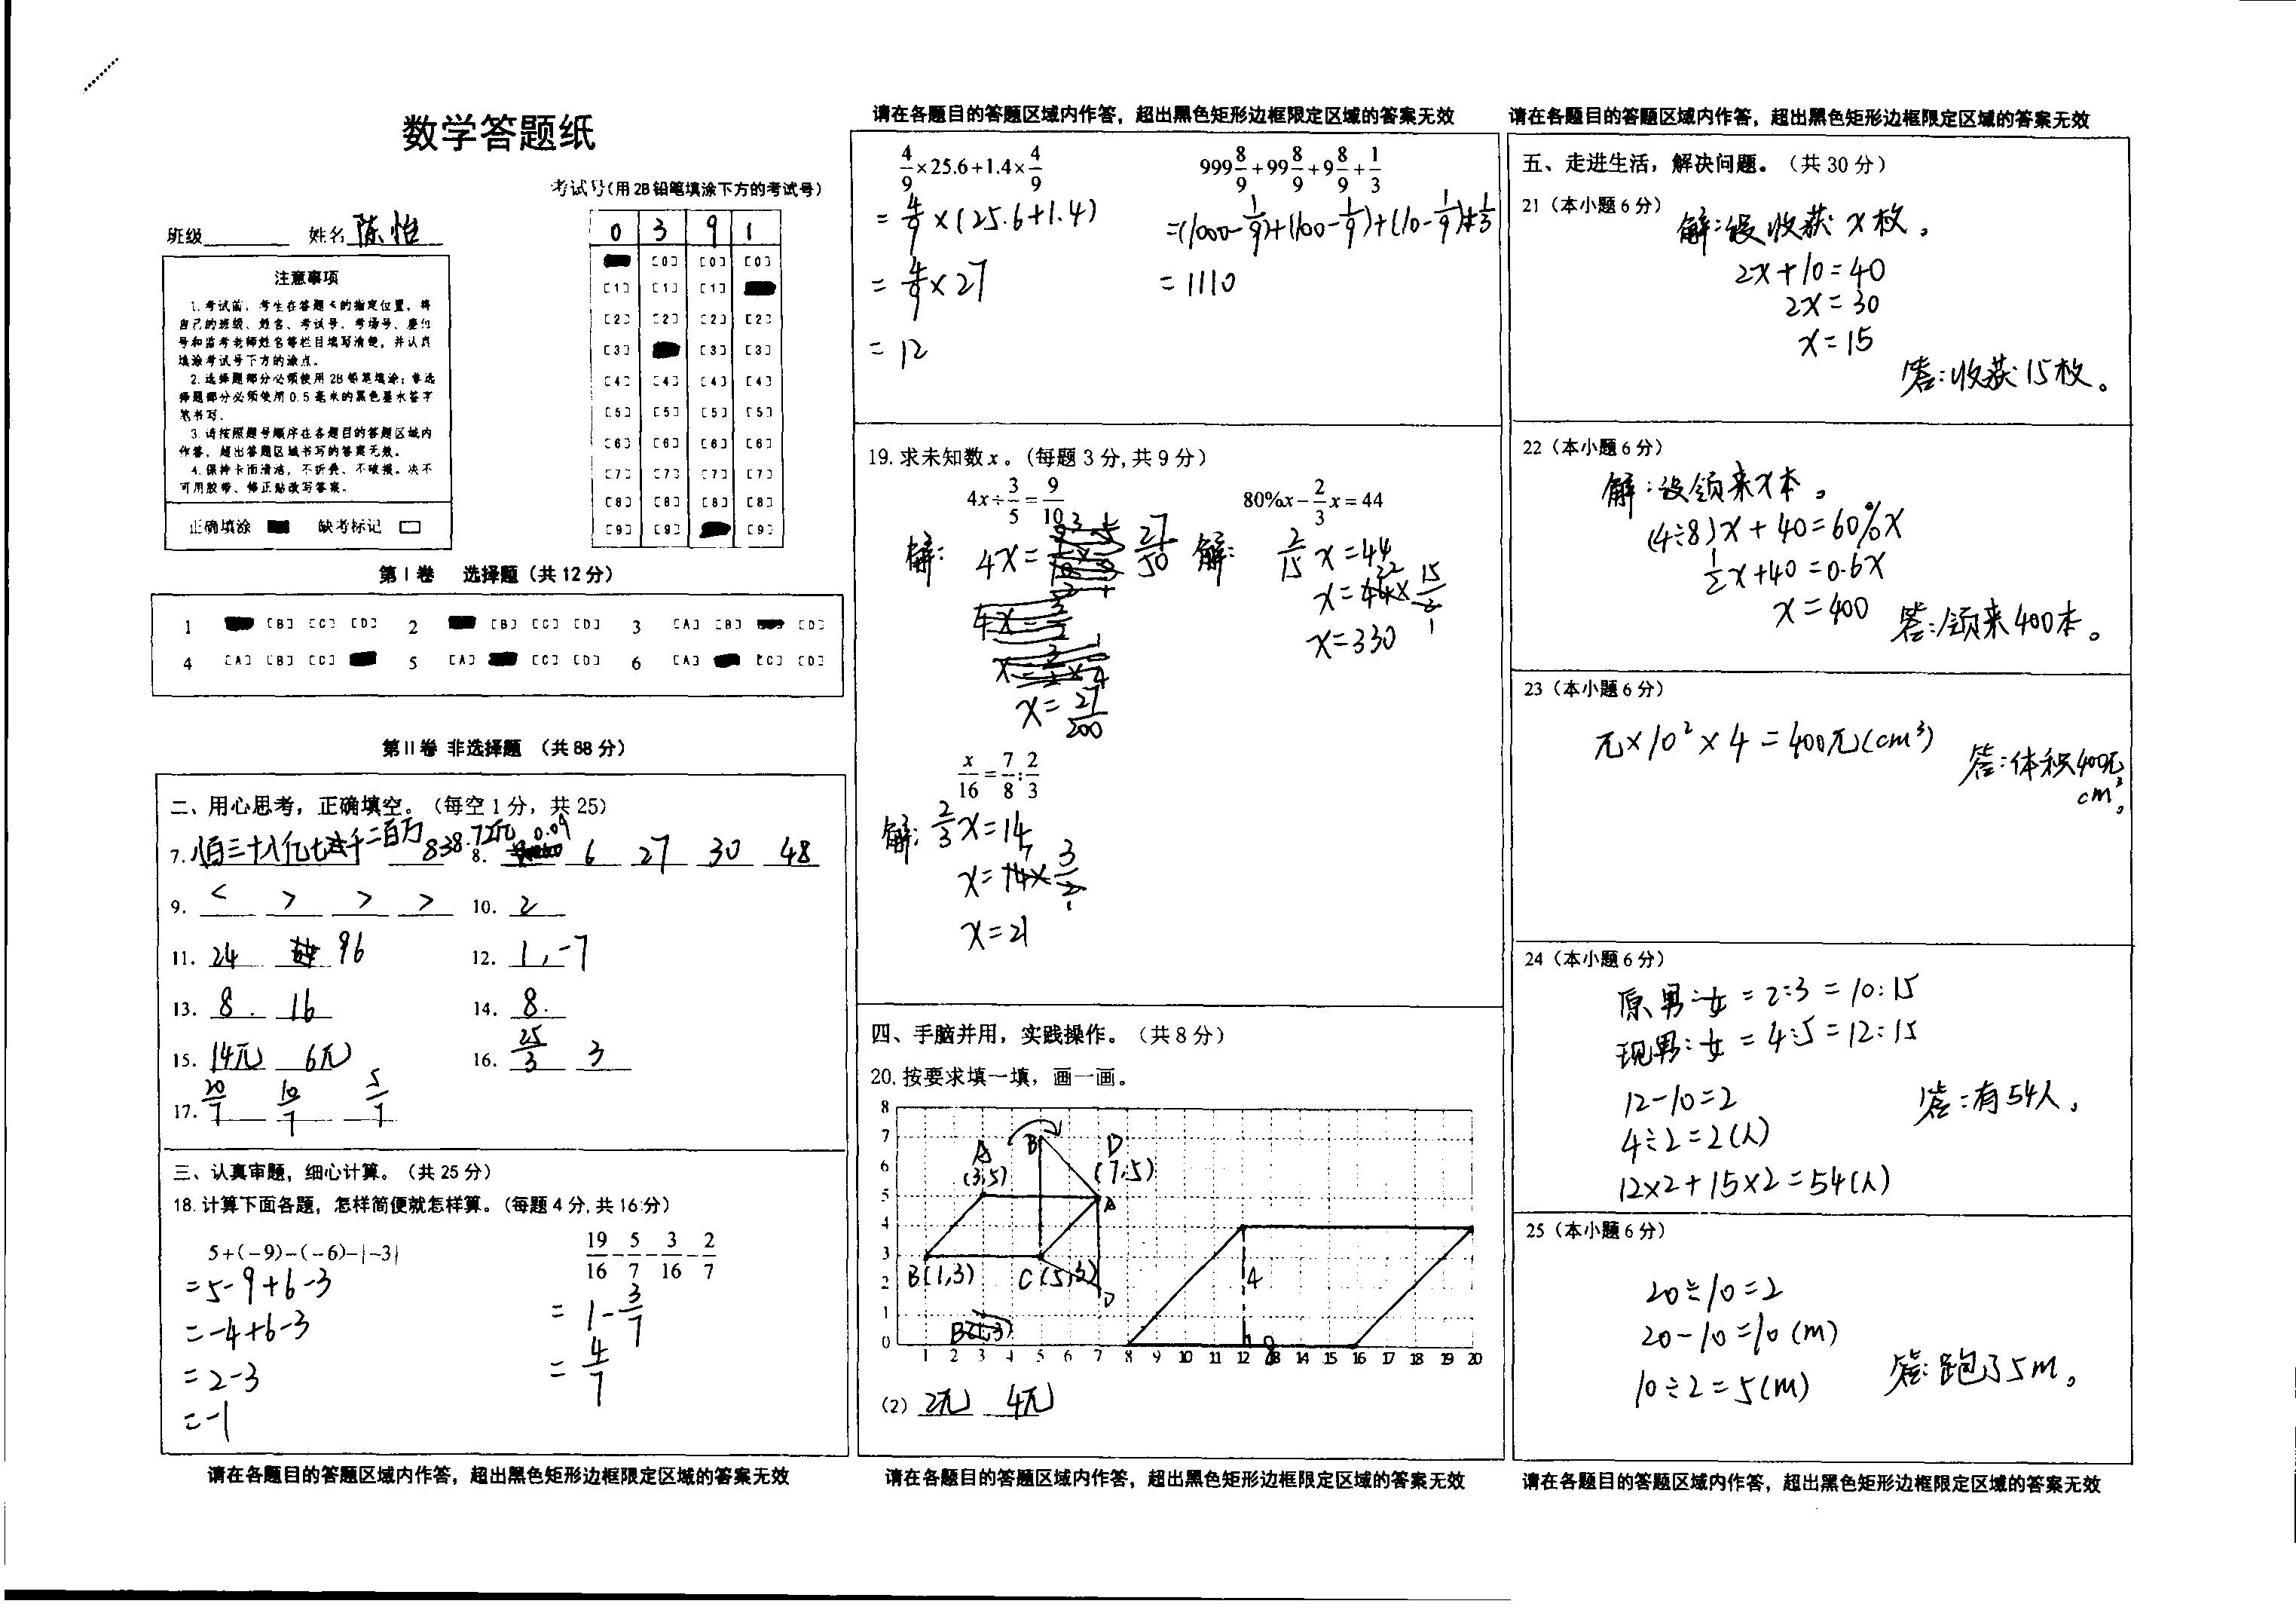 数学答题纸
考试号(用2B铅笔填涂下方的考试号)
班级 姓名 陈怡
0 3 9 1
注意事项
1.考试前,考生在答题卡的指定位置,将
自己的班级、姓名、考试号、考场号、座位
号和监考老师姓名等栏目填写清楚,并认真
填涂考试号下方的涂点。
2.选择题部分必须使用2B铅笔填涂;非选
择题部分必须使用0.5毫米的黑色墨水签字
笔书写。
3.请按照题号顺序在各题目的答题区域内
作答,超出答题区域书写的答案无效。
4.保持卡面清洁,不折叠、不破损。决不
可用胶带、修正贴改写答案。
正确填涂 缺考标记
[0] [0] [0]
[1] [1] [1]
[2] [2] [2] [2]
[3] [3] [3]
[4] [4] [4] [4]
[5] [5] [5] [5]
[6] [6] [6] [6]
[7] [7] [7] [7]
[8] [8] [8] [8]
[9] [9] [9]
第Ⅰ卷 选择题(共12分)
1 [B] [C] [D] 2 [B] [C] [D] 3 [A] [B] [D]
4 [A] [B] [C] 5 [A] [C] [D] 6 [A] [C] [D]
第II卷 非选择题 (共88分)
二、用心思考,正确填空。(每空1分,共25)
7. 八百三十八亿七千二百万 838.72亿 8. 0.09 6 27 30 48
9. < > > > 10. 2
11. 24 96 12. 1,-7
13. 8. 16 14. 8.
15. 14元 6元 16. 25/3 3
17. 20/7 10/7 5/7
三、认真审题,细心计算。(共25分)
18.计算下面各题,怎样简便就怎样算。(每题4分,共16分)
5+(-9)-(-6)-|-3|
=5-9+6-3
=-4+6-3
=2-3
=-1
19/16-5/7-3/16-2/7
=1-3/7
=4/7
请在各题目的答题区域内作答,超出黑色矩形边框限定区域的答案无效
请在各题目的答题区域内作答,超出黑色矩形边框限定区域的答案无效
4/9×25.6+1.4×4/9
=4/9×(25.6+1.4)
=4/9×27
=12
999 8/9+99 8/9+9 8/9+1/3
=(1000-1/9)+(100-1/9)+(10-1/9)+1/3
=1110
19.求未知数x。(每题3分,共9分)
4x÷3/5=9/10
解: 4x=27/50
x=27/200
80%x-2/3x=44
解: 2/15x=44
x=44×15/2
x=330
x/16=7/8:2/3
解: 2/3x=14
x=14×3/2
x=21
四、手脑并用,实践操作。(共8分)
20.按要求填一填,画一画。
8
7 B
6 A (3,5) D (7,5)
5 A
4
3
2 B(1,3) C(5,3) 4
1 D
0
1 2 3 4 5 6 7 8 9 10 11 12 13 14 15 16 17 18 19 20
(2) 2元 4元
请在各题目的答题区域内作答,超出黑色矩形边框限定区域的答案无效
请在各题目的答题区域内作答,超出黑色矩形边框限定区域的答案无效
五、走进生活,解决问题。(共30分)
21(本小题6分)
解:设收获x枚。
2x+10=40
2x=30
x=15
答:收获15枚。
22(本小题6分)
解:设领来x本。
(4÷8)x+40=60%x
1/2x+40=0.6x
x=400
答:领来400本。
23(本小题6分)
元×10²×4=400元(cm³)
答:体积400元
cm³。
24(本小题6分)
原男:女=2:3=10:15
现男:女=4:5=12:15
12-10=2
4÷2=2(人)
12×2+15×2=54(人)
答:有54人。
25(本小题6分)
20÷10=2
20-10=10(m)
10÷2=5(m)
答:跑了5m。
请在各题目的答题区域内作答,超出黑色矩形边框限定区域的答案无效